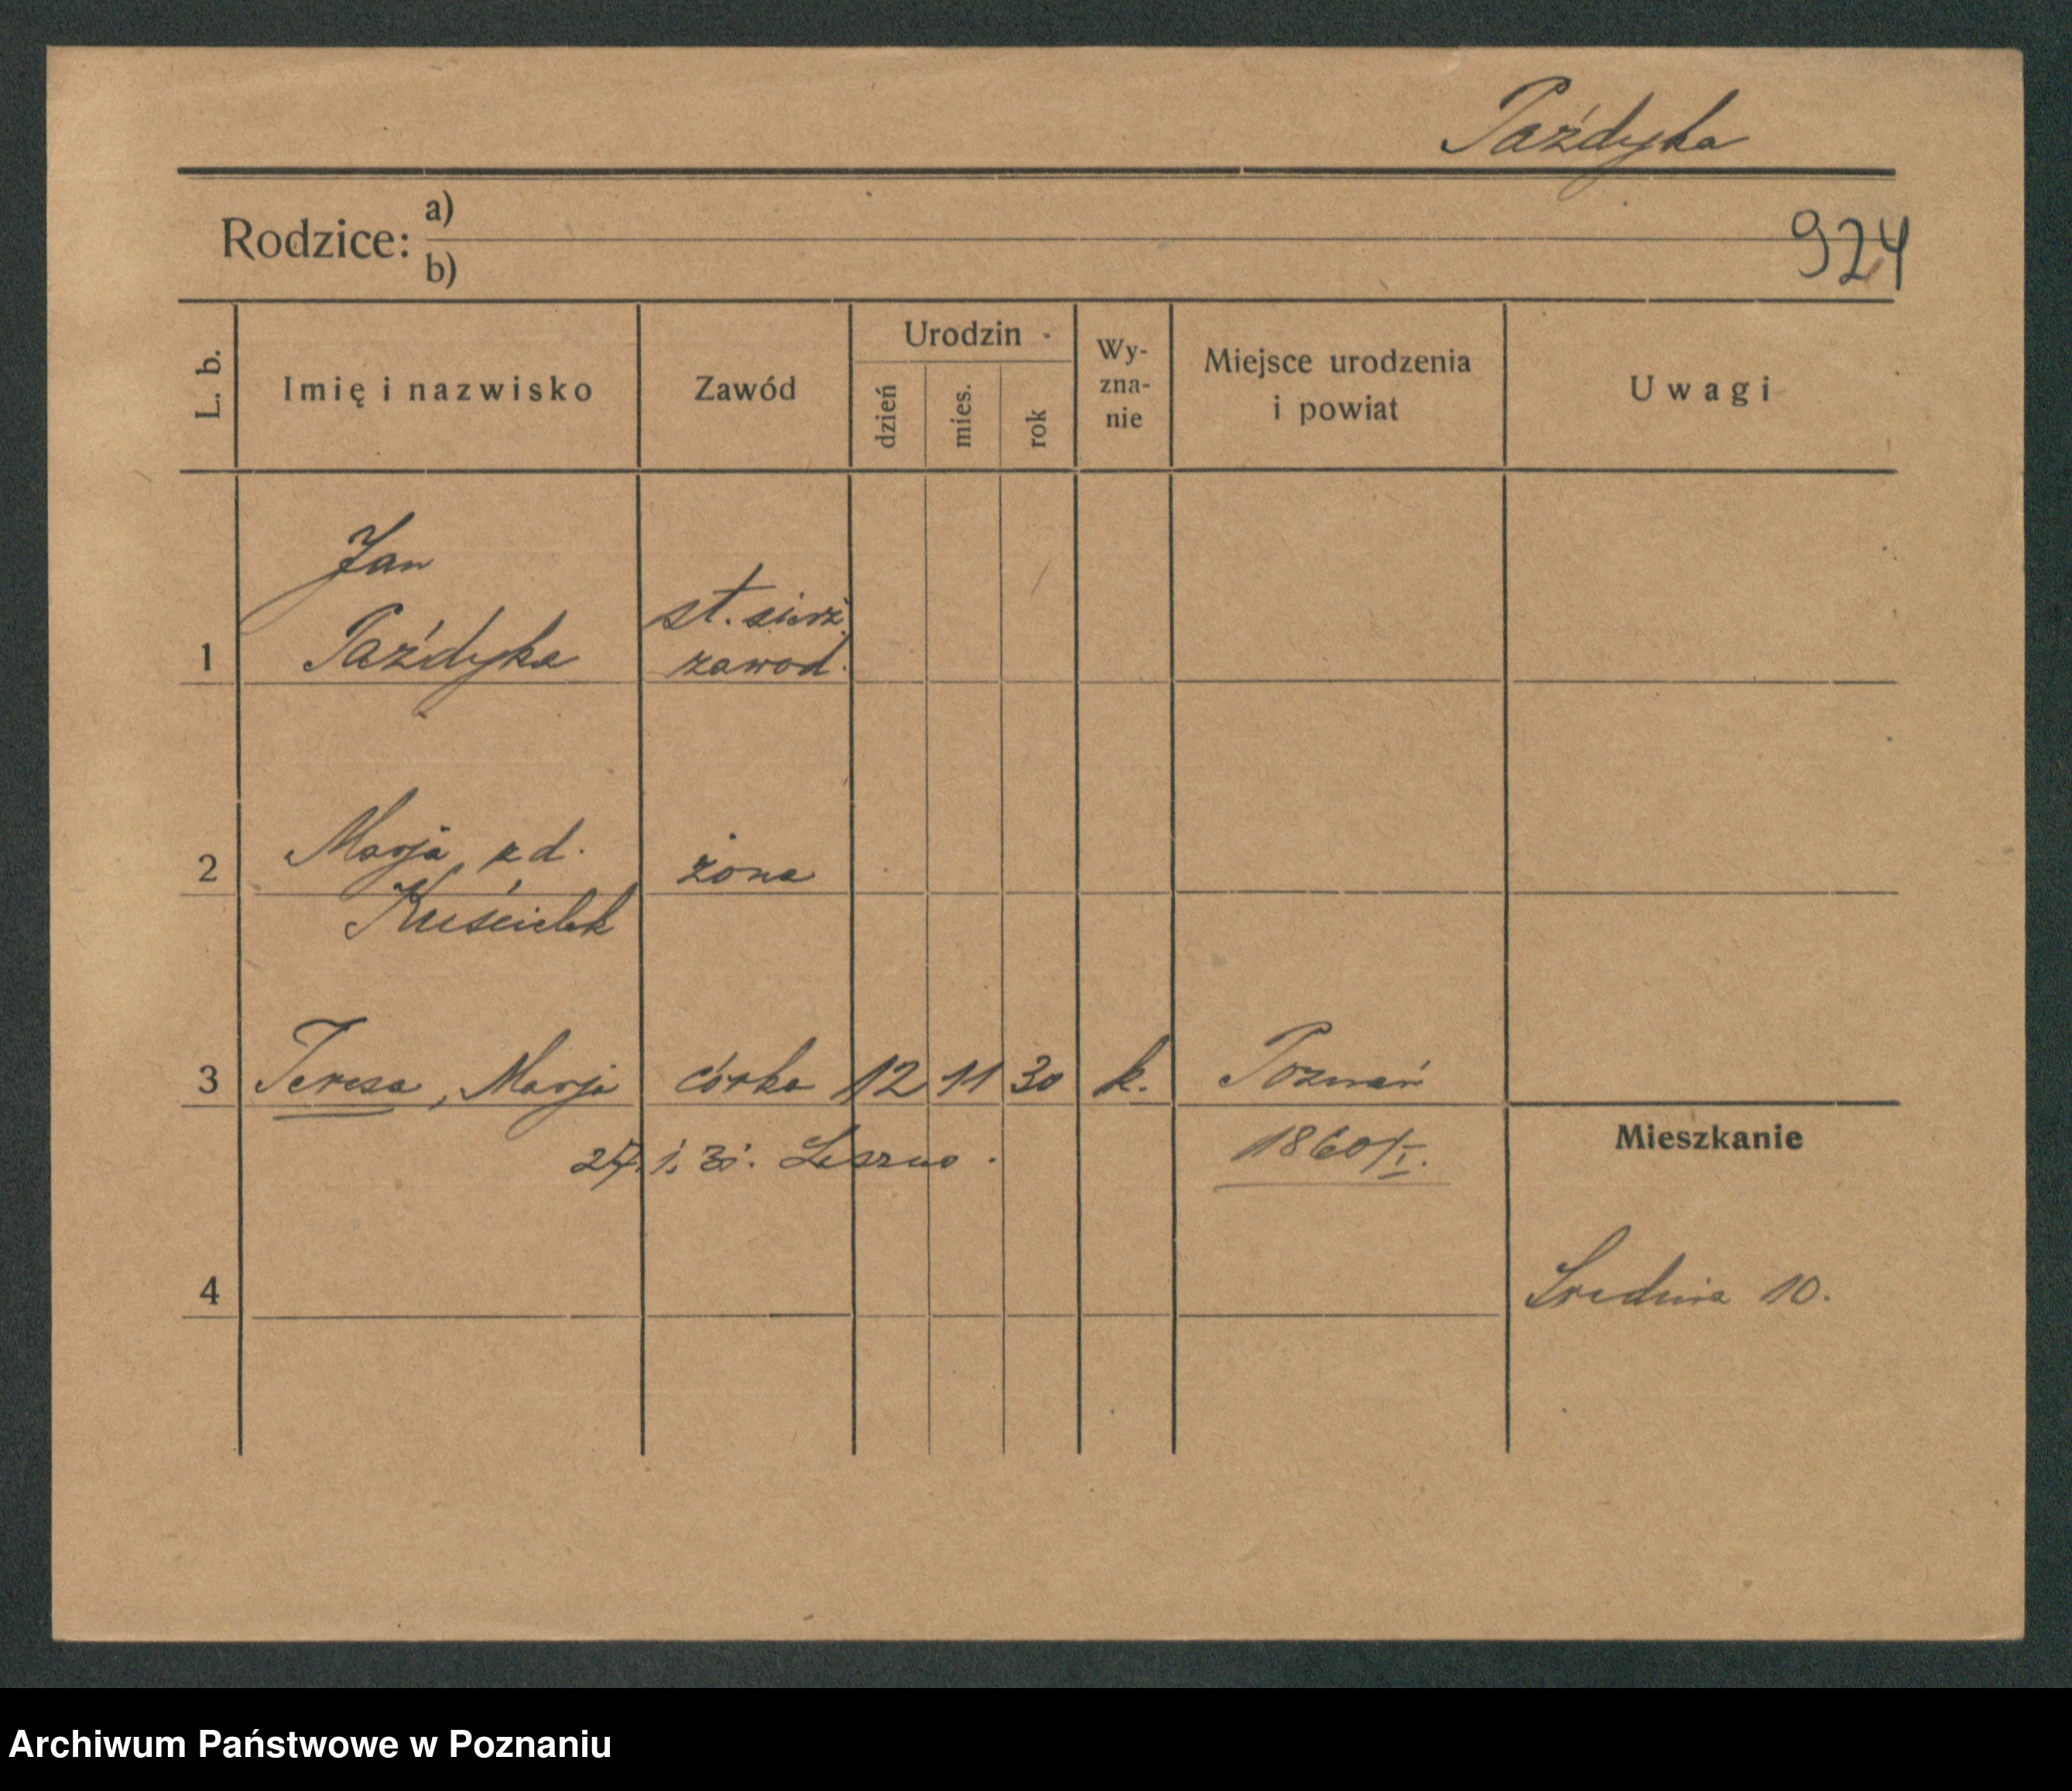 Paździka
Rodzice:
a)
b)
924
L. b.
Imię i nazwisko
Zawód
Urodzin
dzień
mies.
rok
Wy-
zna-
nie
Miejsce urodzenia
i powiat
Uwagi
Jan
st. sierż.
1
Paździka
zawod.
2
Marja, z d.
żona
Kuścielek
3
Teresa, Marja
córka
12
11
30
k.
Poznań
27. 1. 31. Leszno.
1860/I.
Mieszkanie
4
Srednia 10.
Archiwum Państwowe w Poznaniu